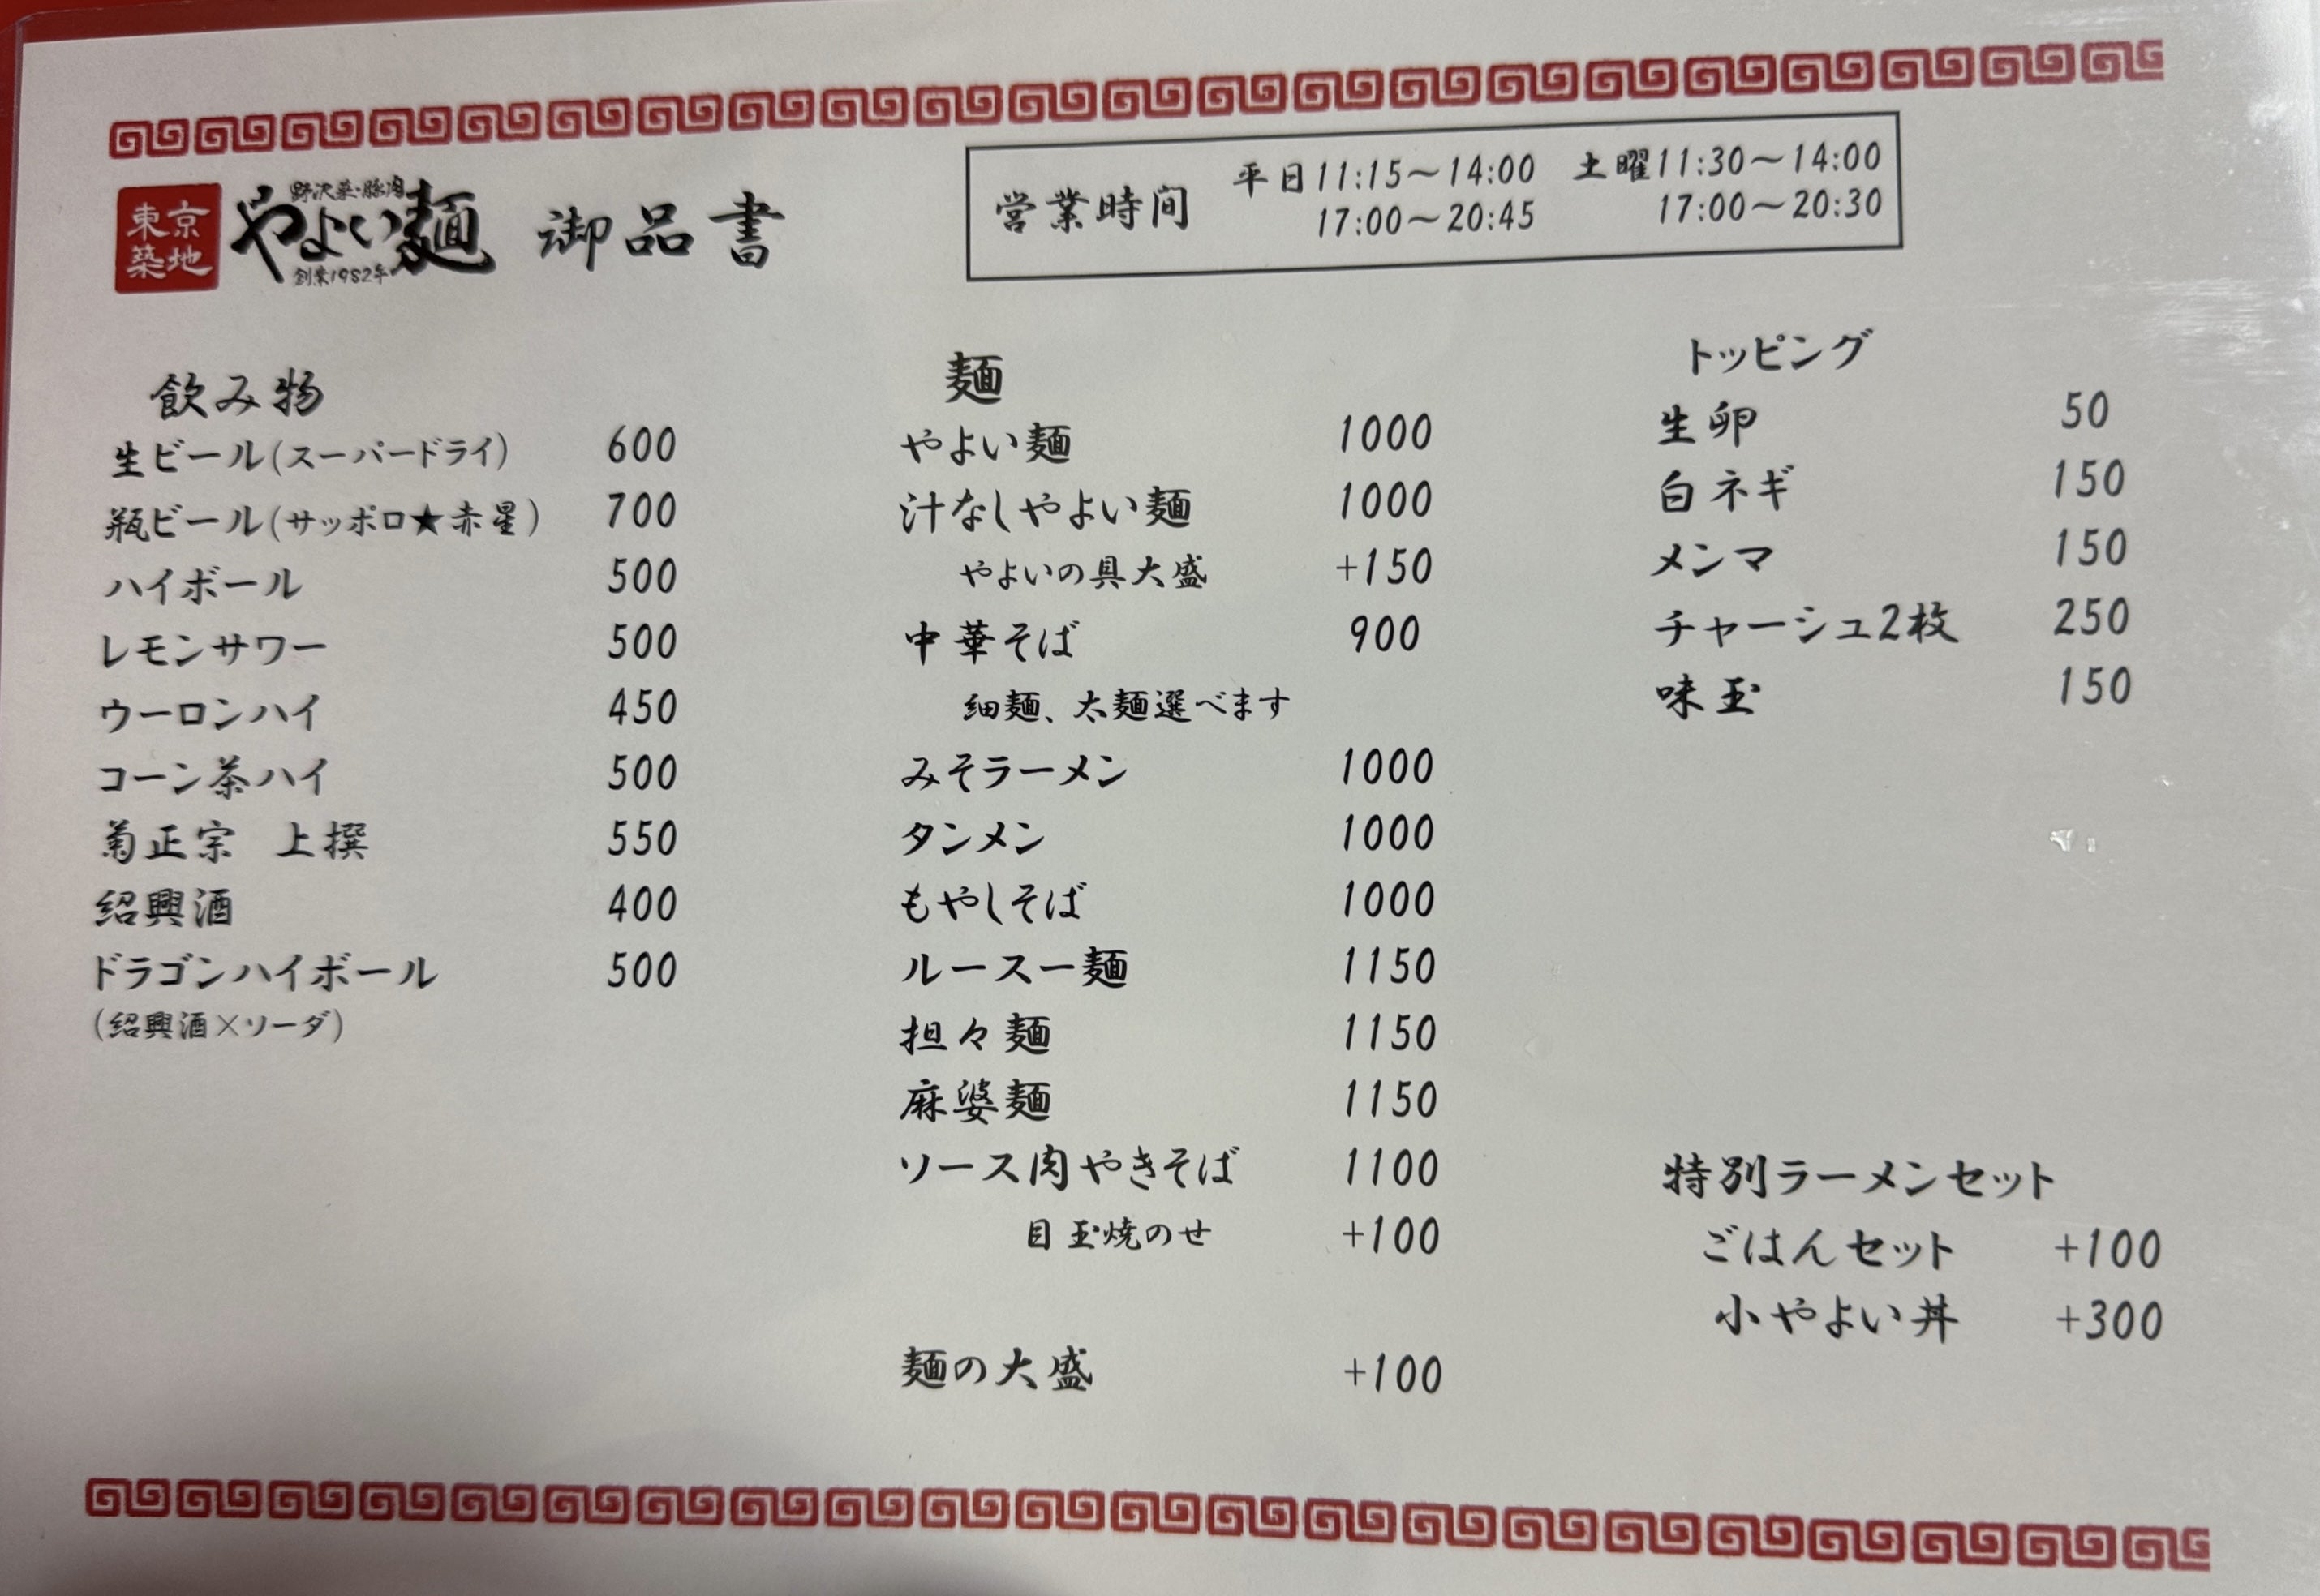 東京
築地
野沢菜・豚肉
やよい麺
創業1982年
御品書
営業時間
平日11:15～14:00
17:00～20:45
土曜11:30～14:00
17:00～20:30
飲み物
生ビール(スーパードライ) 600
瓶ビール(サッポロ★赤星) 700
ハイボール 500
レモンサワー 500
ウーロンハイ 450
コーン茶ハイ 500
菊正宗 上撰 550
紹興酒 400
ドラゴンハイボール 500
(紹興酒×ソーダ)
麺
やよい麺 1000
汁なしやよい麺 1000
やよいの具大盛 +150
中華そば 900
細麺、太麺選べます
みそラーメン 1000
タンメン 1000
もやしそば 1000
ルースー麺 1150
担々麺 1150
麻婆麺 1150
ソース肉やきそば 1100
目玉焼のせ +100
麺の大盛 +100
トッピング
生卵 50
白ネギ 150
メンマ 150
チャーシュ2枚 250
味玉 150
特別ラーメンセット
ごはんセット +100
小やよい丼 +300